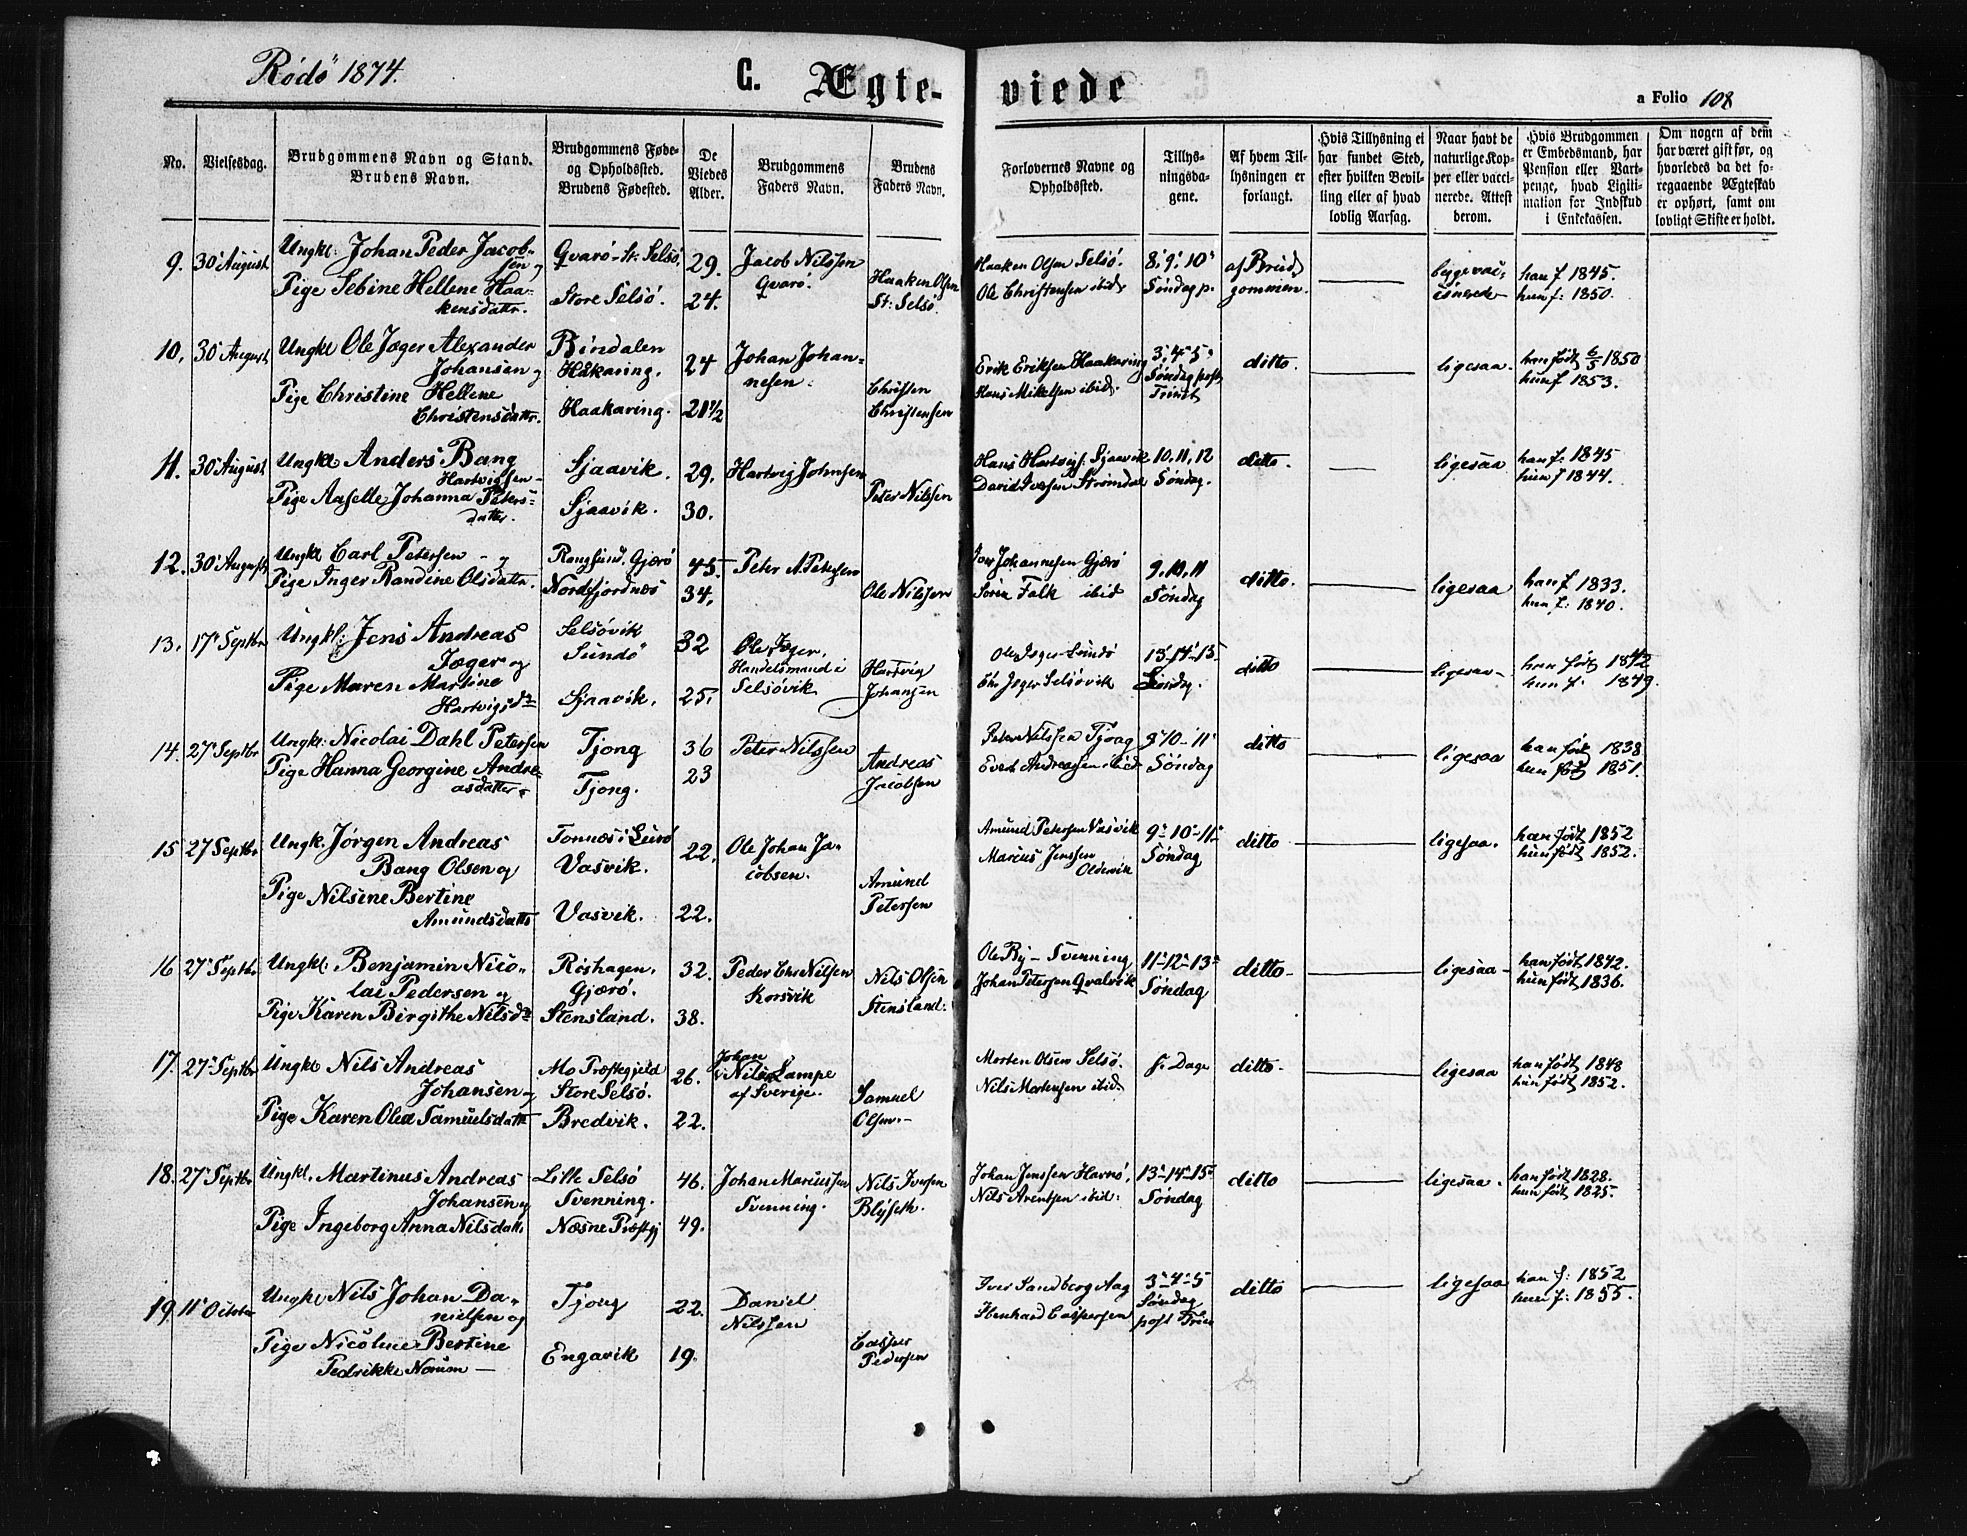 Rødø 1874.
G. Ægteviede
a Folio 108
No.
Vielsesdag.
Brudgommens Navn og Stand.
Brudens Navn.
Brudgommens Føde-
og Opholdssted.
Brudens Fødested.
De
Viedes
Alder.
Brudgommens
Faders Navn.
Brudens
Faders Navn.
Forlovernes Navne og
Opholdssted.
Tillys-
ningsda-
gene.
Af hvem Til-
lysningen er
forlangt.
Hvis Tillysning ei
har fundet Sted,
efter hvilken Bevil-
ling eller af hvad
lovlig Aarsag.
Naar havt de
naturlige Kop-
per eller vacci-
nerede. Attest
derom.
Hvis Brudgommen
er Embedsmand, har
Pension eller Vart-
penge, hvad Ligiti-
mation for Indskud
i Enkekassen.
Om nogen af dem
har været gift før, og
hvorledes da det fo-
regaaende Ægteskab
er ophørt, samt om
lovligt Skifte er holdt.
9. 30 August
Ungkl: Johan Peder Jacob-
sen og
Pige Sebine Hellene Haa-
kensdattr.
Qvarø - St: Selsø.
Store Selsø.
29.
24.
Jacob Nilssen
Qvarø.
Haaken Olsen
St: Selsø.
Haaken Olsen Selsø.
Ole Christensen ibid.
8, 9, 10
Søndag p.
af Brud
gommen.
begge vac-
cinerede
han f. 1845.
hun f: 1850.
10. 30 August
Ungkl Ole Jæger Alexander
Johansen og
Pige Christine Hellene
Christensdattr.
Bindalen
Haakaring.
Haakaring.
24
21 1/2
Johan Johan-
nesen.
Christen
Christensen
Erik Eriksen Haakaring
Hans Mikelsen ibid.
3, 4, 5
Søndag post
Trinit
ditto.
ligesaa.
han født 6/5 1850
hun f 1853.
11. 30 August
Ungkl Anders Bang
Hartvigssen -
Pige Aaselle Johanna Peters-
datter.
Sjaavik.
Sjaavik.
29.
30.
Hartvig Johnsen
Peter Nilssen
Hans Hartvigs. Sjaavik
David Iversen Strømdal
10, 11, 12
Søndag.
ditto.
ligesaa
han f: 1845
hun f 1844.
12. 30 August
Ungkl Carl Petersen - og
Pige Inger Randine Olsdattr.
Rangsund. Gjærø
Nordfjordnæs
45.
34.
Peter A. Petersen
Ole Nilssen
Johannesen Gjærø
Søren Falk ibid
9, 10, 11
Søndag
ditto.
ligesaa
han f. 1833.
hun f. 1840.
13. 17 Septbr
Ungkl: Jens Andreas
Jæger og
Pige Maren Martine
Hartvigsdr
Selsøvik
Sundø
Sjaavik.
32
25.
Ole Jæger,
Handelsmand i
Selsøvik
Hartvig
Johansen
Ole Jæger Sundø
Chr Jæger Selsøvik
13-14-15
Søndag.
ditto
ligesaa
han født 1842
hun f. 1849.
14. 27 Septbr
Ungkl: Nicolai Dahl Petersen
Pige Hanna Georgine Andre-
asdatter.
Tjong
Tjong.
36
23
Peter Nilssen
Andreas
Jacobsen
Peter Nilssen Tjong
Evert Andreassen ibid
9-10-11
Søndag
ditto
ligesaa
han født 1838
hun født 1851.
15 27 Septbr
Ungk. Jørgen Andreas
Bang Olsen og
Pige Nilsine Bertine
Amundsdattr
Tonnæs i Lurø
Vasvik.
Vasvik.
22.
22.
Ole Johan Ja-
cobsen.
Amund
Petersen
Amund Petersen Vasvik
Marcus Jenssen
Oldervik
9-10-11
Søndag
ditto
ligesaa.
han født 1852
hun født 1852.
16 27 Septbr
Ungkl: Benjamin Nico-
lai Pedersen og
Pige Karen Birgithe Nilsdr
Røshagen.
Gjærø.
Stensland.
32.
38.
Peder Chr Nilsen
Korsvik
Nils Olsen
Stensland.
Ole By - Svenning
Johan Petersen Qvalvik
11-12-13
Søndag
ditto
ligesaa
han født 1842.
hun født 1836.
17. 27 Septbr
Ungkl Nils Andreas
Johansen og
Pige Karen Olea Samuelsdattr
Mo Præstegjeld
Store Selsø.
Bredvik.
26.
22.
Johan
Nilson Lampe
af Sverige.
Samuel
Olsen.
Morten Olsen Selsø.
Nils Mortensen ibid
s. Dage
ditto
ligesaa
han født 1848
hun født 1852.
18. 27 Septbr
Ungkl. Martinus Andreas
Johansen og
Pige Ingeborg Anna Nilsdattr
Lille Selsø
Svenning.
Næsne Præstgj
46.
49.
Johan Mariussen
Svenning.
Nils Iversen
Blyseth.
Johan Jenssen Havnø.
Nils Arentsen ibid.
13-14-15
Søndag
ditto
ligesaa.
han født 1828.
hun født 1825.
19. 11 October
Ungkl Nils Johan Da-
nielsen og
Pige Nicoline Bertine
Pedrikke Norum -
Tjong
Engavik
22.
19.
Daniel
Nilssen
Casper
Pedersen
Iver Sandberg Aag
Ebenhard Caspersen
3-4-5
Søndag
post Trin
ditto
ligesaa
han f: 1852
hun f: 1855.